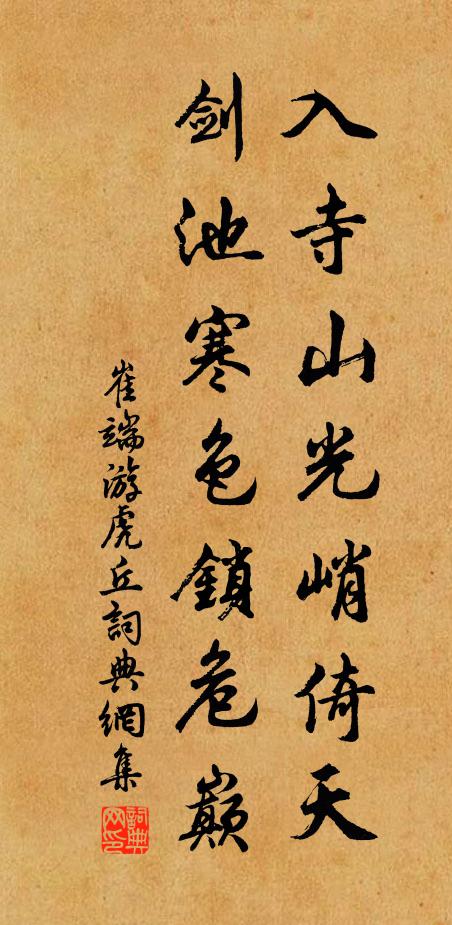 入寺山光峭倚天
剑池寒色鎖危巔
崔端游虎丘詞典網集
詞典网印